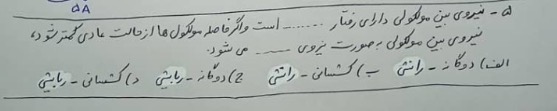 ۵۸
۵ - نیروی بین مولکولی دارای رفتار ........ است و اگر فاصله مولکول ها از حالت عادی کمتر شود،
نیروی بین مولکولی به صورت نیروی ........ می شود.
الف) دوگانه - رانشی ب) کشسانی - رانشی ج) دوگانه - ربایشی د) کشسانی - ربایشی